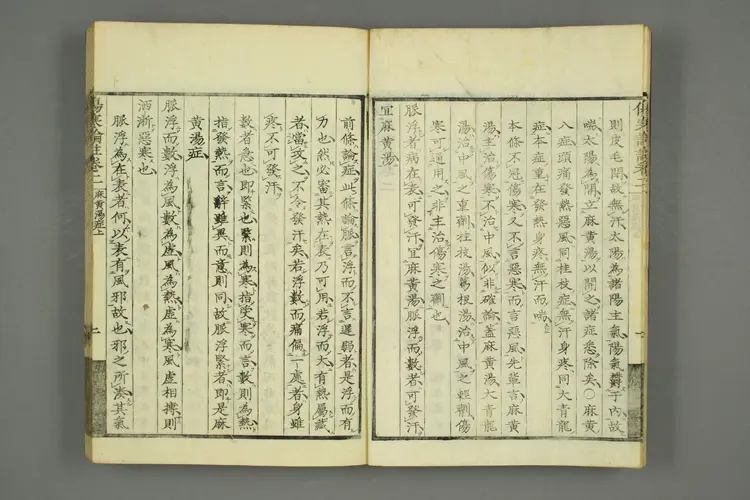 則皮毛閉故無汗太陽為諸陽主氣陽氣欝于內故
喘太陽為開立麻黃湯以開之諸症悉除矣○麻黃
八症頭痛發熱惡風同桂枝症無汗身疼同大青龍
症本症重在發熱身疼無汗而喘
本條不冠傷寒又不言惡寒而言惡風先輩言麻黃
湯主治傷寒不治中風似非確論蓋麻黃湯大青龍
湯治中風之重劑桂枝湯葛根湯治中風之輕劑傷
寒可通用之非主治傷寒之劑也
脈浮者病在表可發汗宜麻黃湯脈浮而數者可發汗
宜麻黃湯
前條論症此條論脈言浮而不言遲弱者是浮而有
力也然必審其熱在表乃可用若浮而大有熱屬藏
者當攻之不令發汗矣若浮數而痛偏一處者身雖
寒不可發汗
數者急也即緊也緊則為寒指受寒而言數則為熱
指發熱而言辭雖異而意則同故脈浮緊者即是麻
黃湯症
脈浮而數浮為風數為虛風為熱虛為寒風虛相摶則
洒淅惡寒也
脈浮為在表者何以表有風邪故也邪之所湊其氣
傷寒論註卷二
麻黃湯症上
二